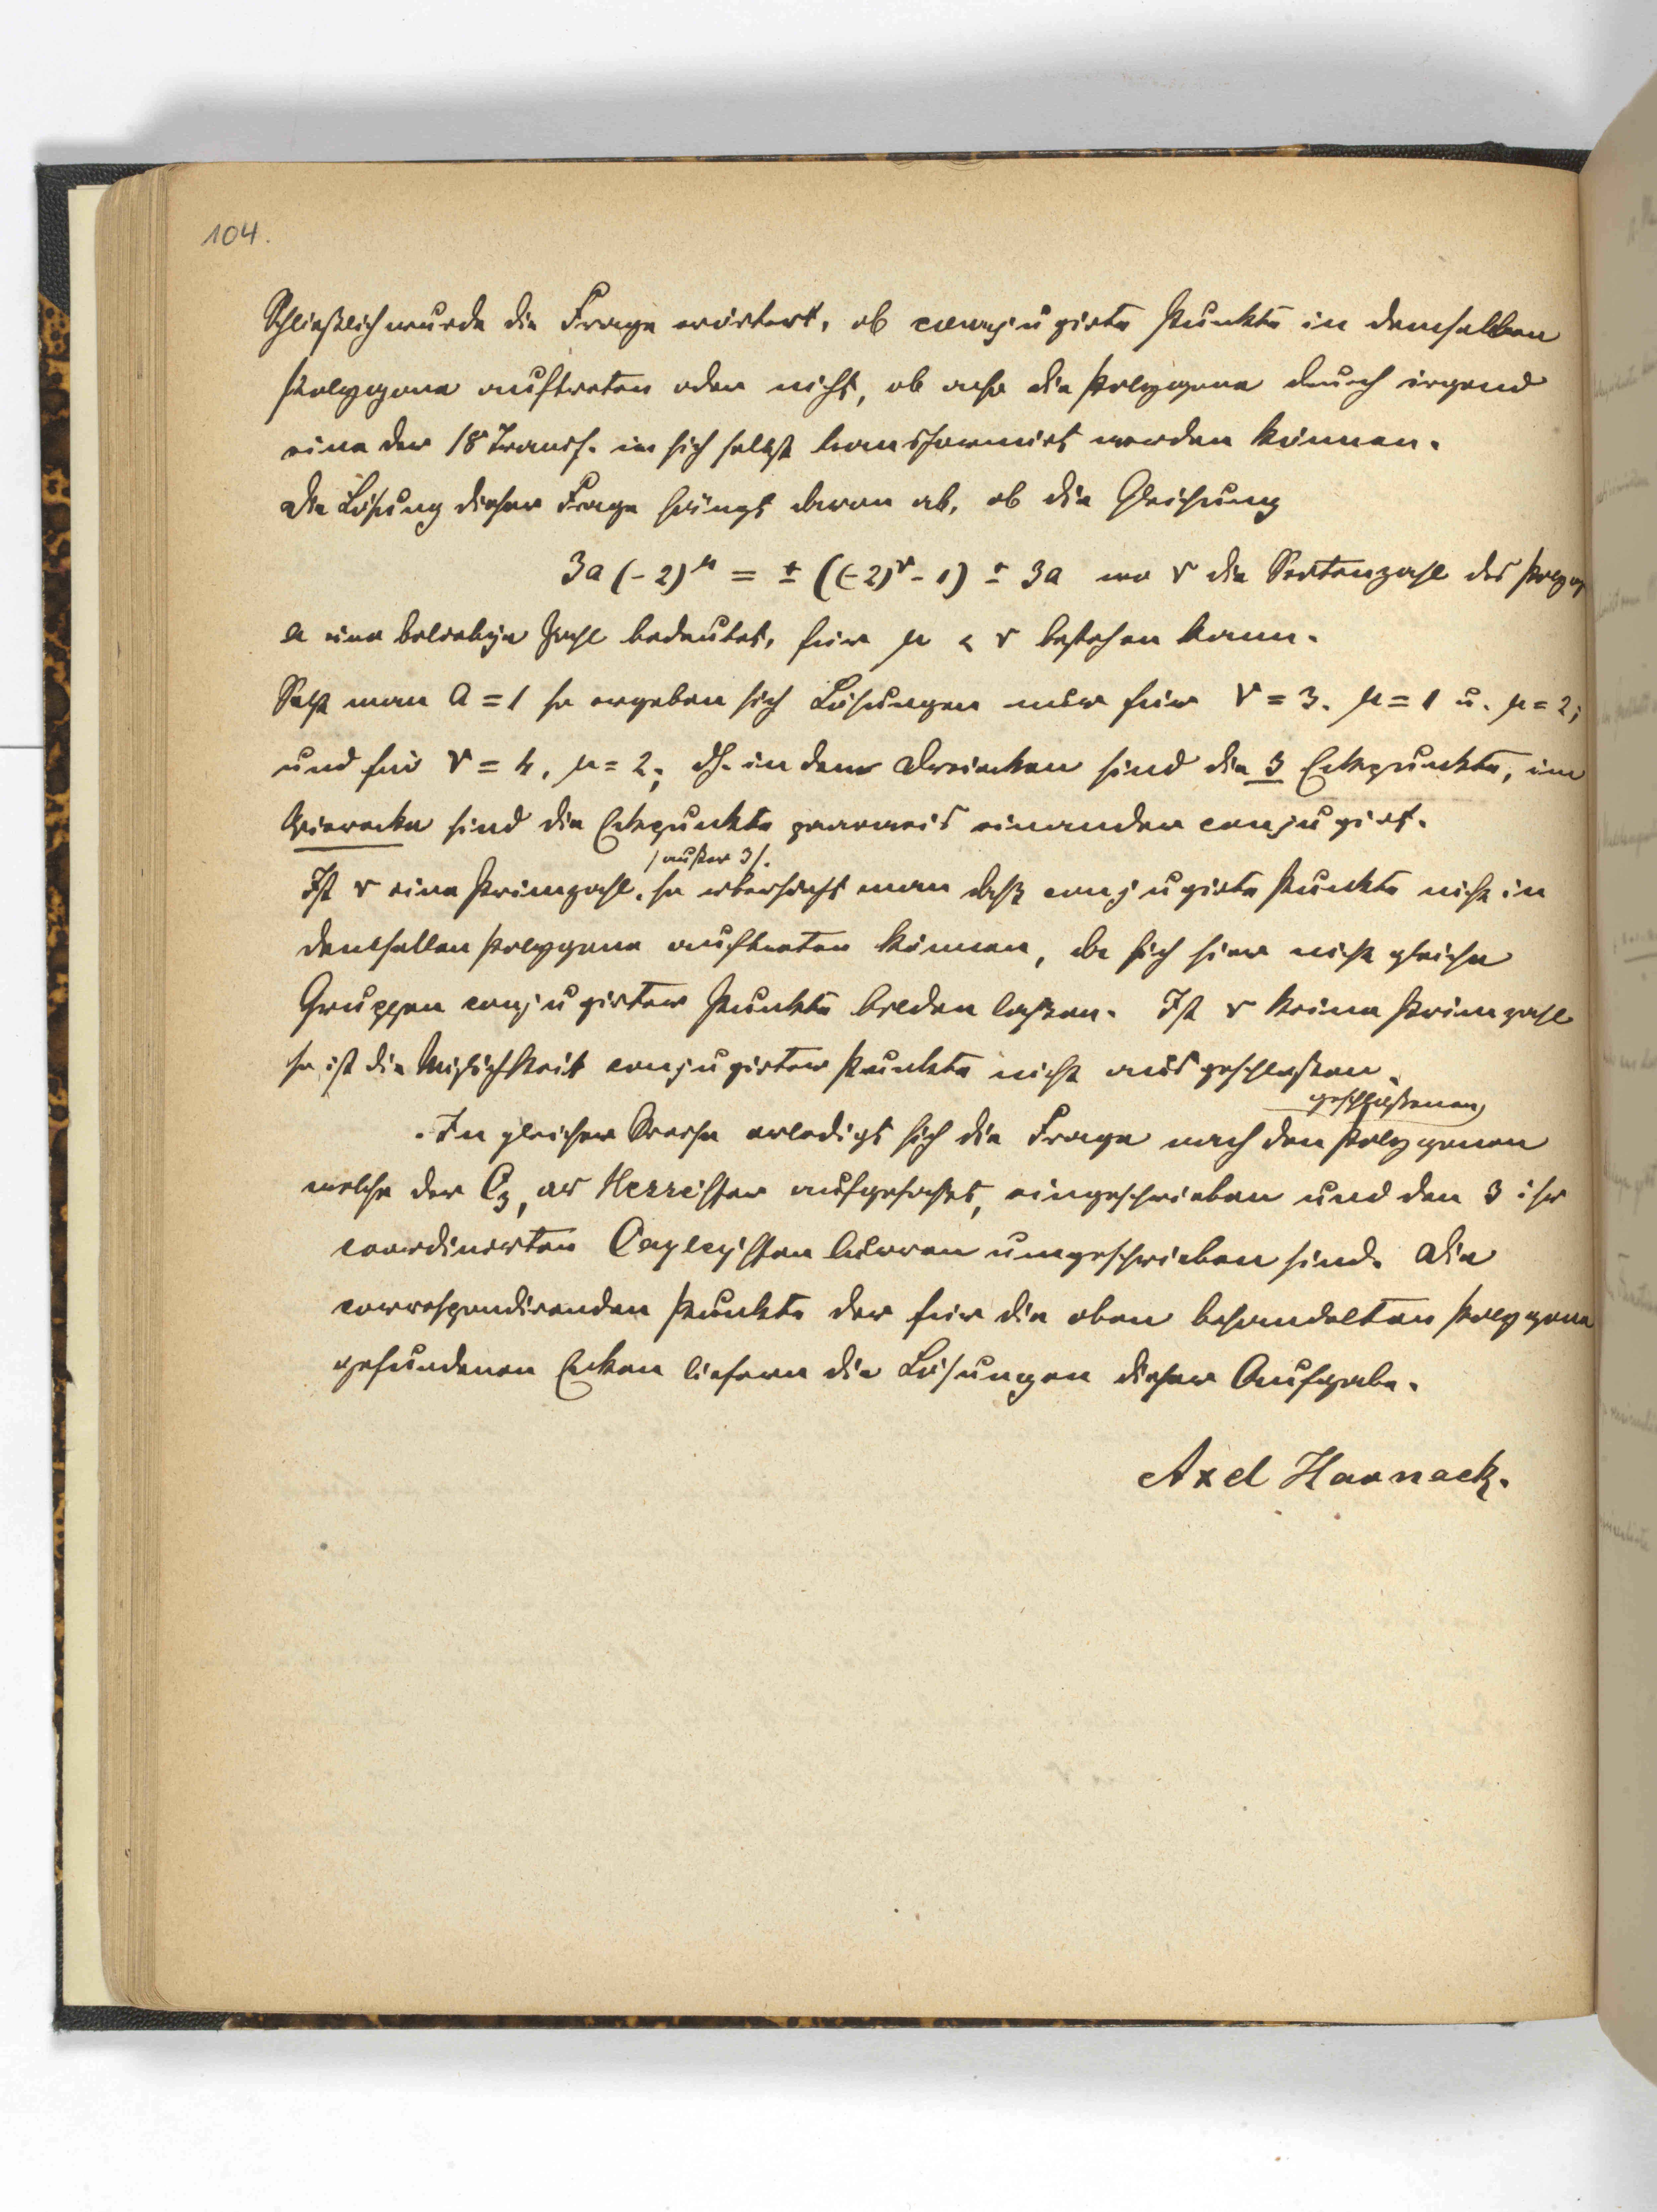 104.
Schließlich wurde die Frage erörtert, ob conjugirte Punkte in demselben
Polygone auftreten oder nicht, ob also die Polygone durch irgend
eine der 18 Transf. in sich selbst transformirt werden können.
Die Lösung dieser Frage hängt davon ab, ob die Gleichung
3a (-2)^μ = ± ((-2)^ν - 1) ± 3a wo ν die Seitenzahl des Polyg
a eine beliebige Zahl bedeutet, für μ < ν bestehen kann.
Setzt man a = 1 so ergeben sich Lösungen nur für ν = 3. μ = 1 u. μ = 2;
und für ν = 4, μ = 2; dh. in den Dreiecken sind die 3 Eckpunkte, im
Vierecke sind die Eckpunkte paarweis einander conjugirt.
(außer 3).
Ist ν eine Primzahl, so übersieht man daß conjugirte Punkte nicht in
demselben Polygone auftreten können, da sich hier nicht gleiche
Gruppen conjugirter Punkte bilden laßen. Ist ν keine Primzahl
so ist die Möglichkeit conjugirter Punkte nicht ausgeschloßen.
geschloßenen
In gleicher Weise erledigt sich die Frage nach den Polygonen
welche der C3, als Hesse'sche aufgefaßt, eingeschrieben und den 3 ihr
coordinirten Cayley'schen Curven umgeschrieben sind. Die
correspondirenden Punkte der für die oben behandelten Polygone
gefundenen Ecken liefern die Lösungen dieser Aufgabe.
Axel Harnack.